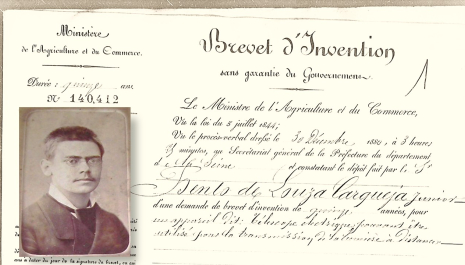 Ministère
de l'Agriculture et du Commerce.
Durée : quinze ans
N° 140,412
Brevet d'Invention
sans garantie du Gouvernement.
1
Le Ministre de l'Agriculture et du Commerce,
Vu la loi du 5 juillet 1844;
Vu le procès-verbal dressé le 30 Décembre 1880, à 3 heures
minutes, au Secrétariat général de la Préfecture du département
d Seine et constatant le dépôt fait par le Sr
Bento de Souza Carqueja Junior
d'une demande de brevet d'invention de quinze années, pour
un appareil dit: Télescope électrique, pouvant être
utilisé pour la transmission de la lumière à distance
à dater du jour de la signature du brevet, ou